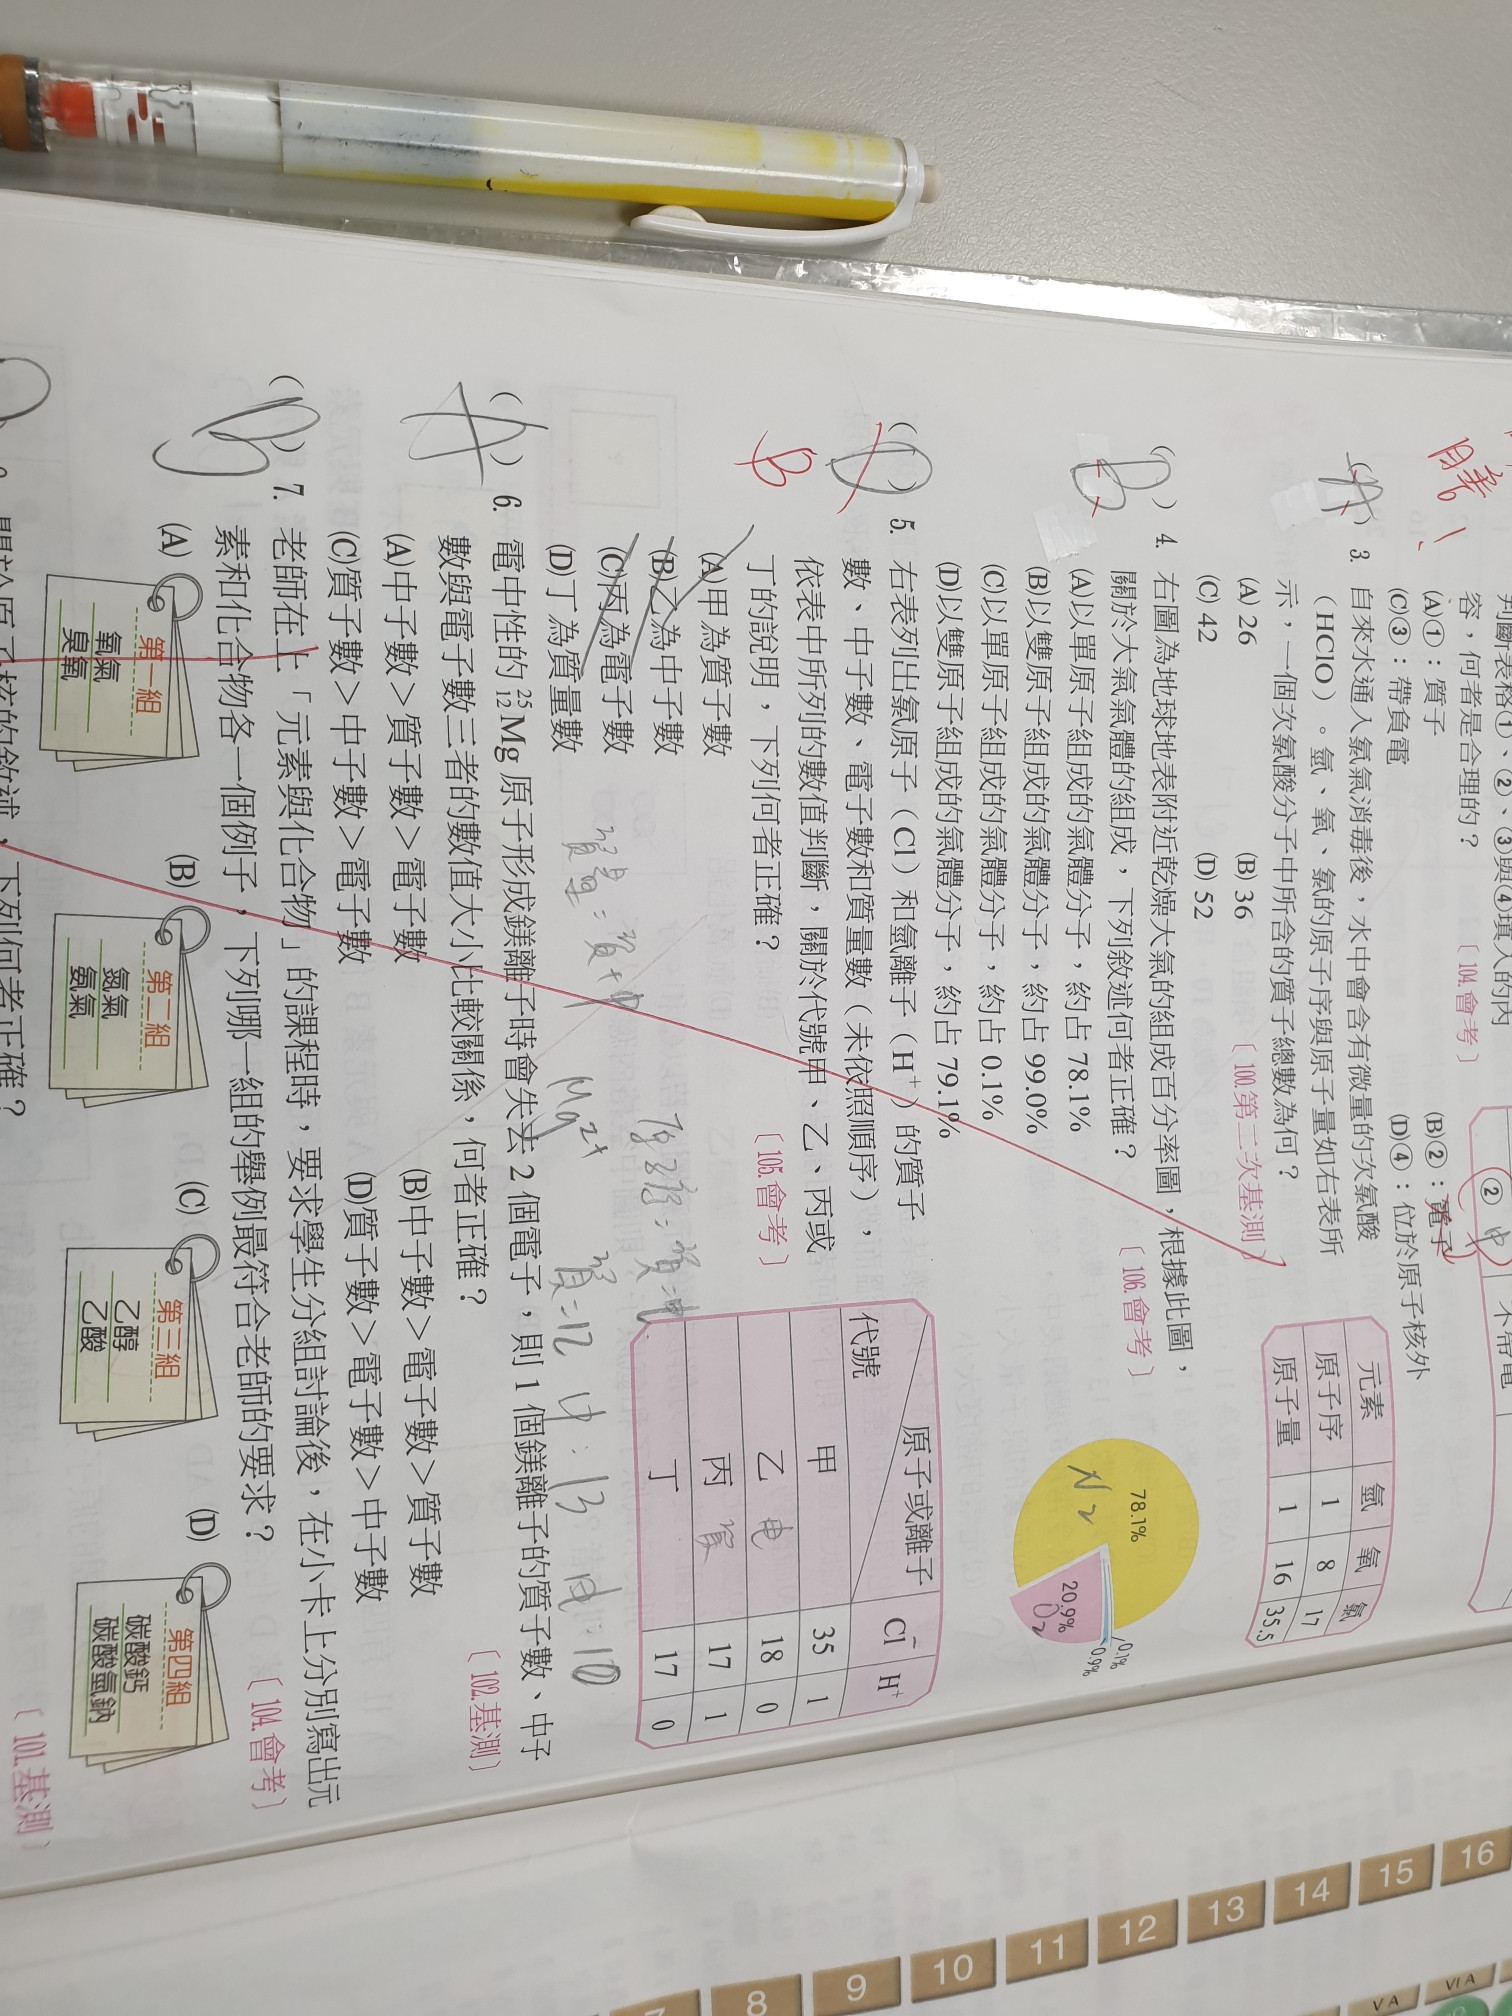 判斷表格①、②、③與④填入的內
容，何者是合理的？〔104.會考〕
(A)①：質子
(B)②：電子
(C)③：帶負電
(D)④：位於原子核外
② 中
不帶電
(A) 3. 自來水通入氯氣消毒後，水中會含有微量的次氯酸
（HClO）。氫、氧、氯的原子序與原子量如右表所
示，一個次氯酸分子中所含的質子總數為何？
(A) 26
(B) 36 〔100.第二次基測〕
(C) 42
(D) 52
元素 氫 氧 氯
原子序 1 8 17
原子量 1 16 35.5
(B) 4. 右圖為地球地表附近乾燥大氣的組成百分率圖，根據此圖，
關於大氣氣體的組成，下列敘述何者正確？〔106.會考〕
(A)以單原子組成的氣體分子，約占 78.1%
(B)以雙原子組成的氣體分子，約占 99.0%
(C)以單原子組成的氣體分子，約占 0.1%
(D)以雙原子組成的氣體分子，約占 79.1%
78.1%
N2
20.9%
O2
0.1%
0.9%
5. 右表列出氯原子（Cl）和氫離子（H+）的質子
數、中子數、電子數和質量數（未依照順序），
依表中所列的數值判斷，關於代號甲、乙、丙或
丁的說明，下列何者正確？〔105.會考〕
B
(A)甲為質子數
(B)乙為中子數
(C)丙為電子數
(D)丁為質量數
原子或離子 Cl- H+
代號
甲 35 1
乙 电 18 0
丙 質 17 1
丁 17 0
質量=質+中
Mg2+
質=12 中:13 电:10
(A) 6. 電中性的 25 12 Mg 原子形成鎂離子時會失去 2 個電子，則 1 個鎂離子的質子數、中子
數與電子數三者的數值大小比較關係，何者正確？〔102.基測〕
(A)中子數＞質子數＞電子數
(B)中子數＞電子數＞質子數
(C)質子數＞中子數＞電子數
(D)質子數＞電子數＞中子數
(B) 7. 老師在上「元素與化合物」的課程時，要求學生分組討論後，在小卡上分別寫出元
素和化合物各一個例子，下列哪一組的舉例最符合老師的要求？〔104.會考〕
(A)
第一組
氧氣
臭氧
(B)
第二組
氮氣
氨氣
(C)
第三組
乙醇
乙酸
(D)
第四組
碳酸鈣
碳酸氫鈉
關於原子核的敘述，下列何者正確？〔101.基測〕
7 8 9 10 11 12 13 14 15 16
V A
VI A